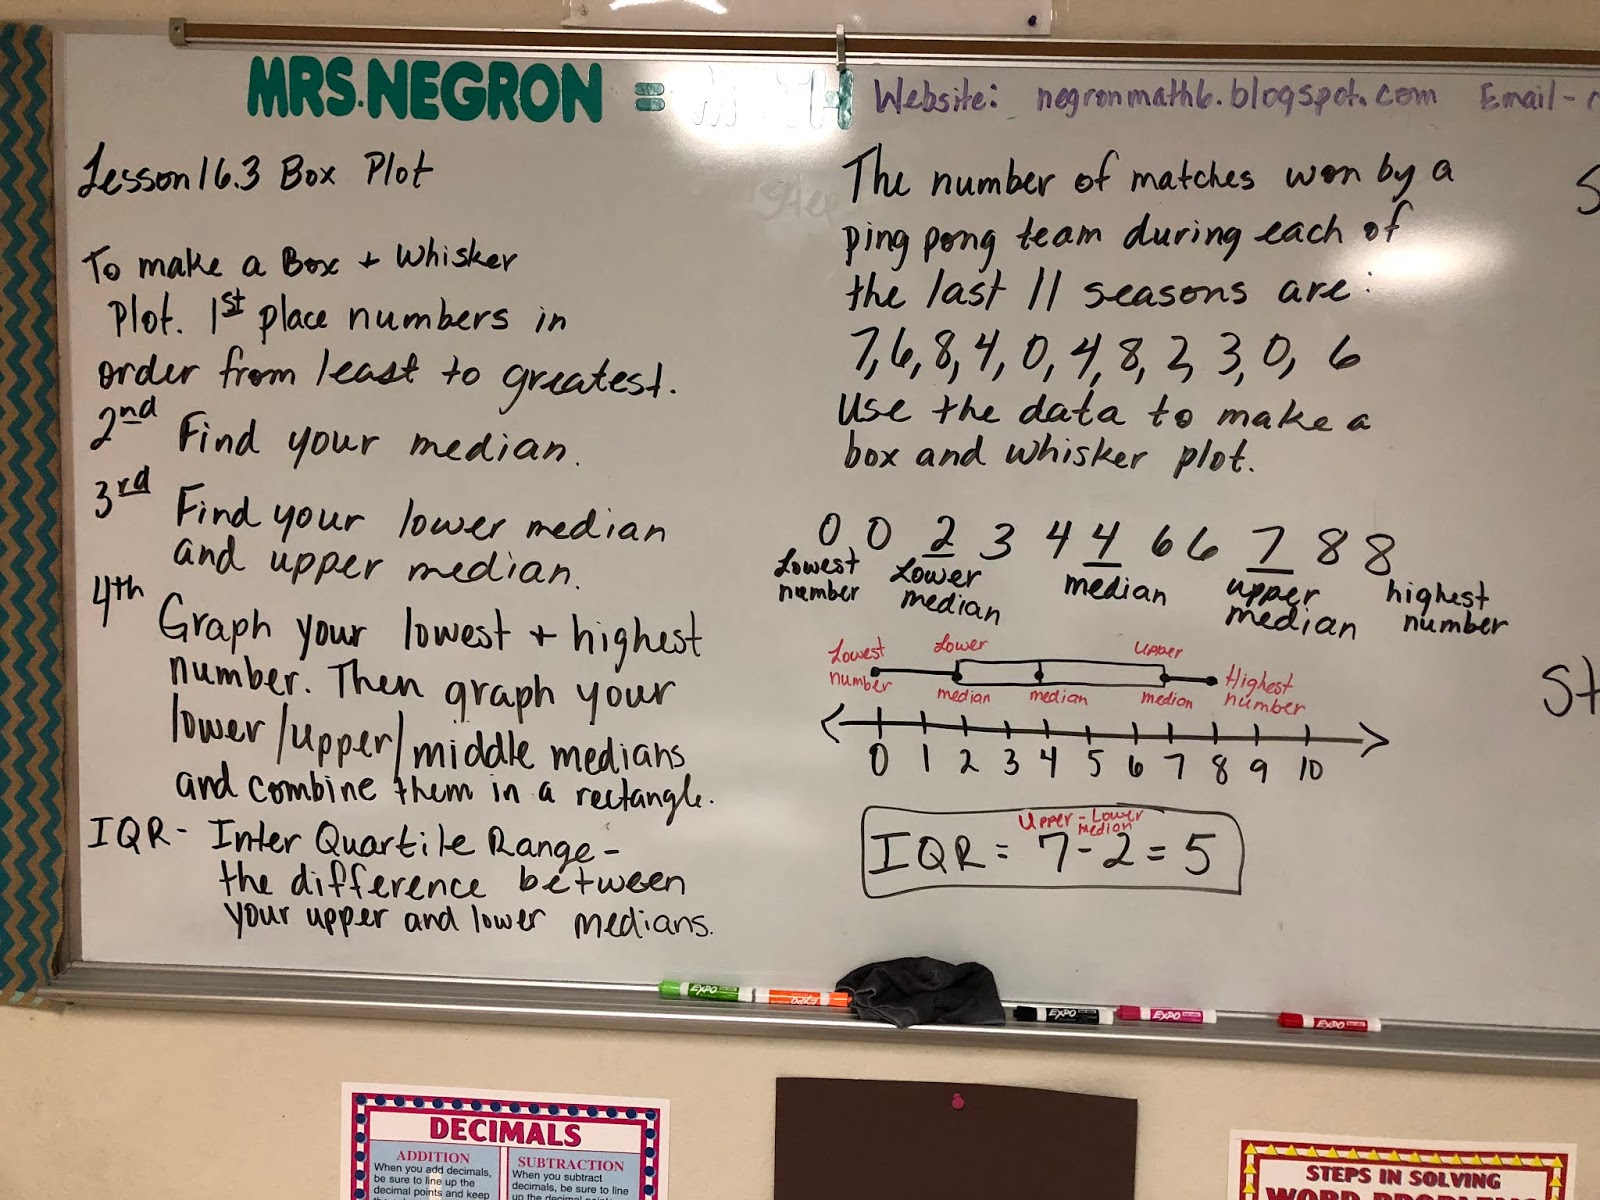 MRS. NEGRON = MATH
Website: negronmath6.blogspot.com Email -
Lesson 16.3 Box Plot
To make a Box + Whisker
Plot. 1st place numbers in
order from least to greatest.
2nd Find your median.
3rd Find your lower median
and upper median.
4th Graph your lowest + highest
number. Then graph your
lower/upper/middle medians
and combine them in a rectangle.
IQR - Inter Quartile Range -
the difference between
your upper and lower medians.
The number of matches won by a
ping pong team during each of
the last 11 seasons are:
7, 6, 8, 4, 0, 4, 8, 2, 3, 0, 6
Use the data to make a
box and whisker plot.
0 0 2 3 4 4 6 6 7 8 8
Lowest number
Lower median
median
upper median
highest number
Lowest number
Lower median
median
upper median
Highest number
0 1 2 3 4 5 6 7 8 9 10
Upper - Lower
median
IQR = 7 - 2 = 5
S
St
EXPO
EXPO
EXPO
EXPO
EXPO
DECIMALS
ADDITION
When you add decimals,
be sure to line up the
decimal points and keep
SUBTRACTION
When you subtract
decimals, be sure to line
STEPS IN SOLVING